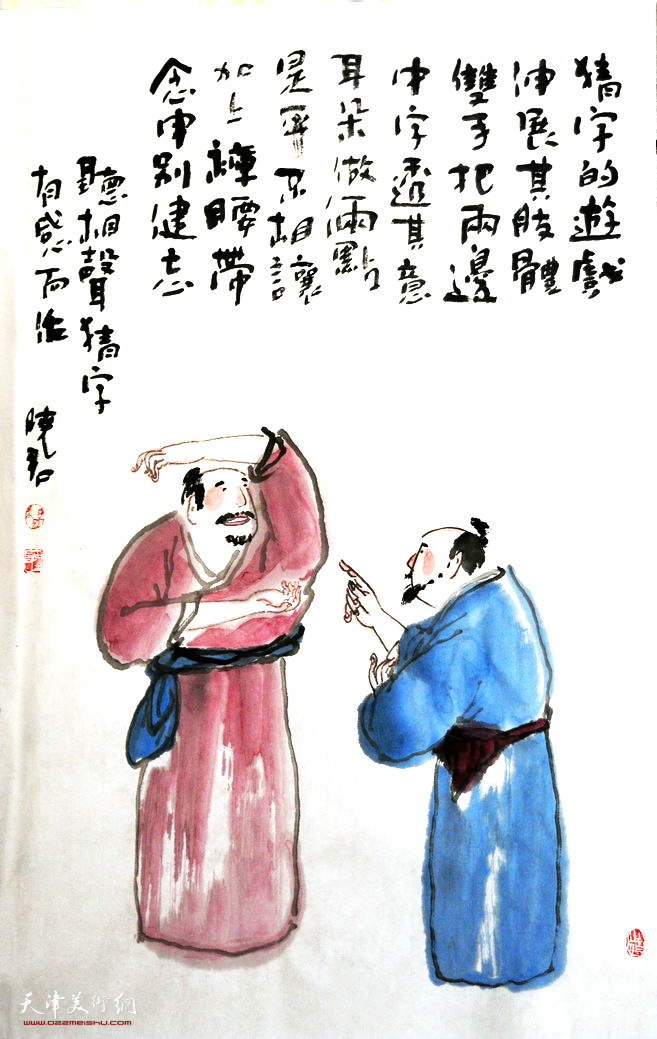 猜字的遊戲
伸展其肢體
雙手把兩邊
中字透其意
耳朵做兩點
是耶不相讓
加上褲腰帶
念申别健忘
聽相聲猜字
有感而作
曉君
天津美術網
www.022meishu.com